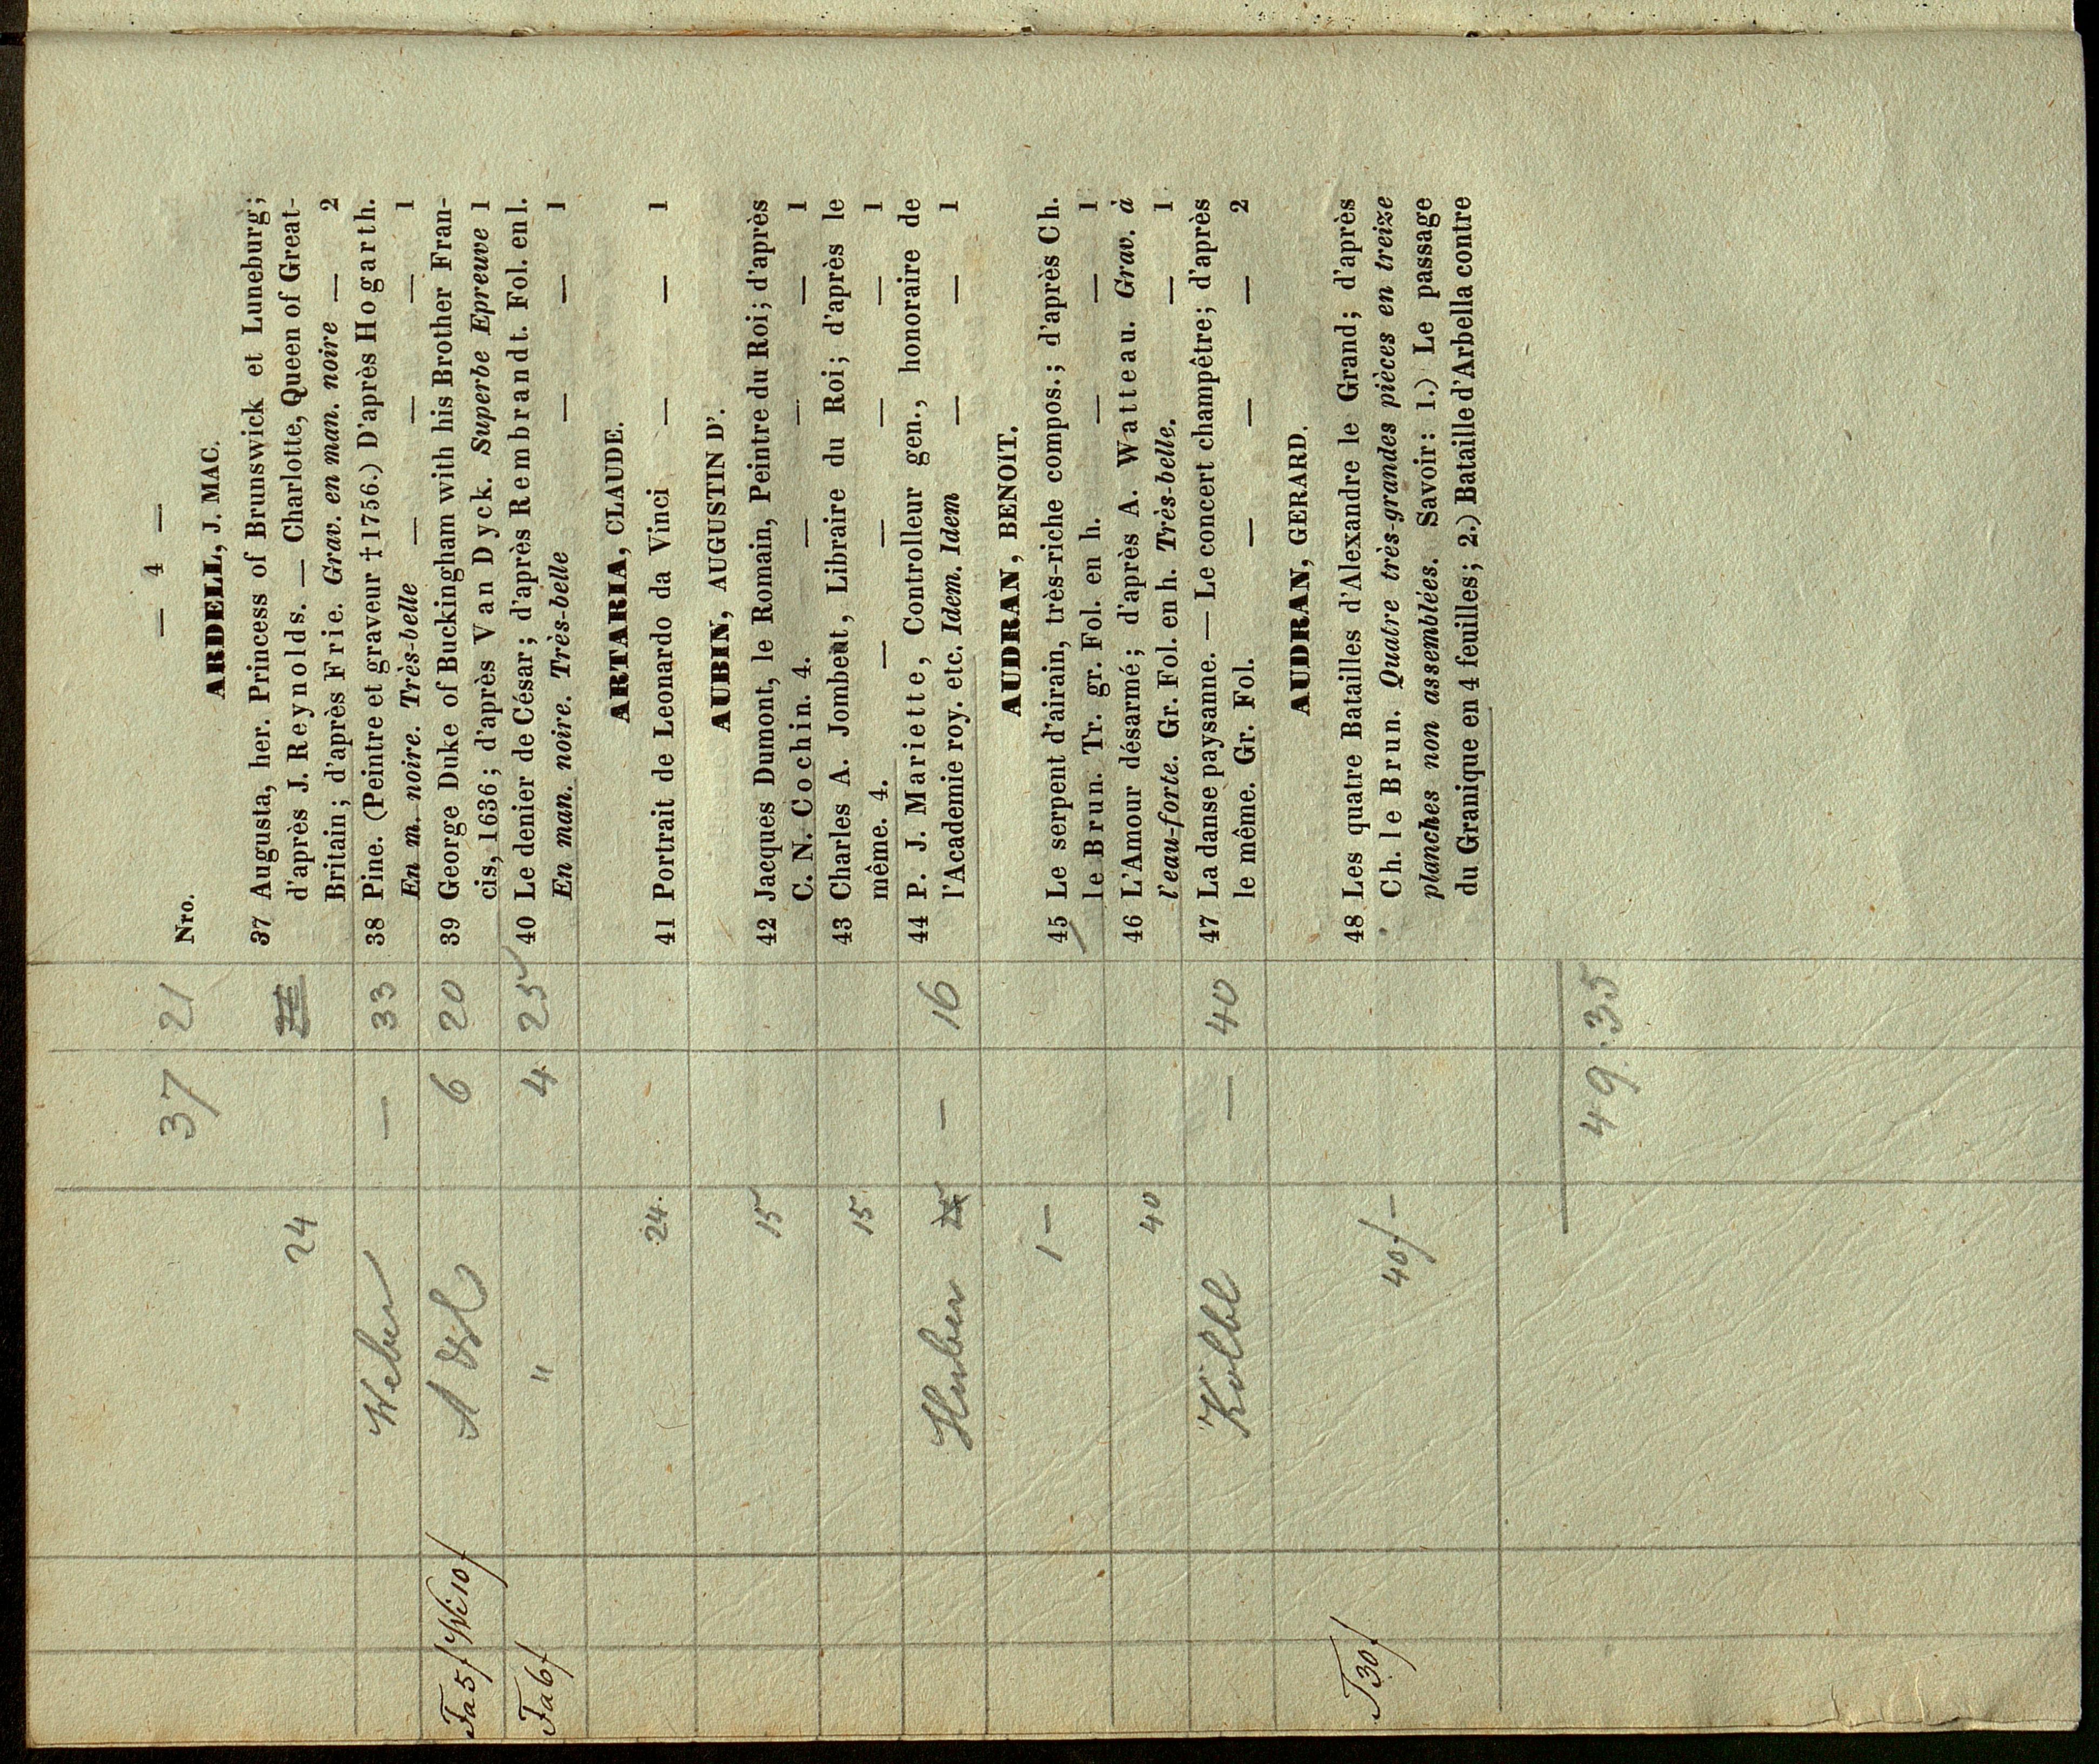 — 4 —
37 21
Nro.
ARDELL, J. MAC.
37 Augusta, her. Princess of Brunswick et Luneburg;
d'après J. Reynolds. — Charlotte, Queen of Great-
Britain; d'après Frie. Grav. en man. noire — 2
24
38 Pine. (Peintre et graveur † 1756.) D'après Hogarth.
En m. noire. Très-belle — — — 1
Weber — 33
39 George Duke of Buckingham with his Brother Fran-
cis, 1636; d'après Van Dyck. Superbe Epreuve 1
Fa 5f Wi 10f 6 20
40 Le denier de César; d'après Rembrandt. Fol. en l.
En man. noire. Très-belle — — 1
Fa 6f " 4 25
ARTARIA, CLAUDE.
41 Portrait de Leonardo da Vinci — — 1
24.
AUBIN, AUGUSTIN D'.
42 Jacques Dumont, le Romain, Peintre du Roi; d'après
C. N. Cochin. 4. — — — 1
15
43 Charles A. Jombeut, Libraire du Roi; d'après le
même. 4. — — — — 1
15
44 P. J. Mariette, Controlleur gen., honoraire de
l'Academie roy. etc. Idem. Idem — — 1
Huber — 16
AUDRAN, BENOIT.
45 Le serpent d'airain, très-riche compos.; d'après Ch.
le Brun. Tr. gr. Fol. en h. — — 1
1 —
46 L'Amour désarmé; d'après A. Watteau. Grav. à
l'eau-forte. Gr. Fol. en h. Très-belle. — 1
40
47 La danse paysanne. — Le concert champêtre; d'après
le même. Gr. Fol. — — — 2
Kölbl — 40
AUDRAN, GERARD.
48 Les quatre Batailles d'Alexandre le Grand; d'après
Ch. le Brun. Quatre très-grandes pièces en treize
planches non assemblées. Savoir: 1.) Le passage
du Granique en 4 feuilles; 2.) Bataille d'Arbella contre
T 30f 40f —
49. 35